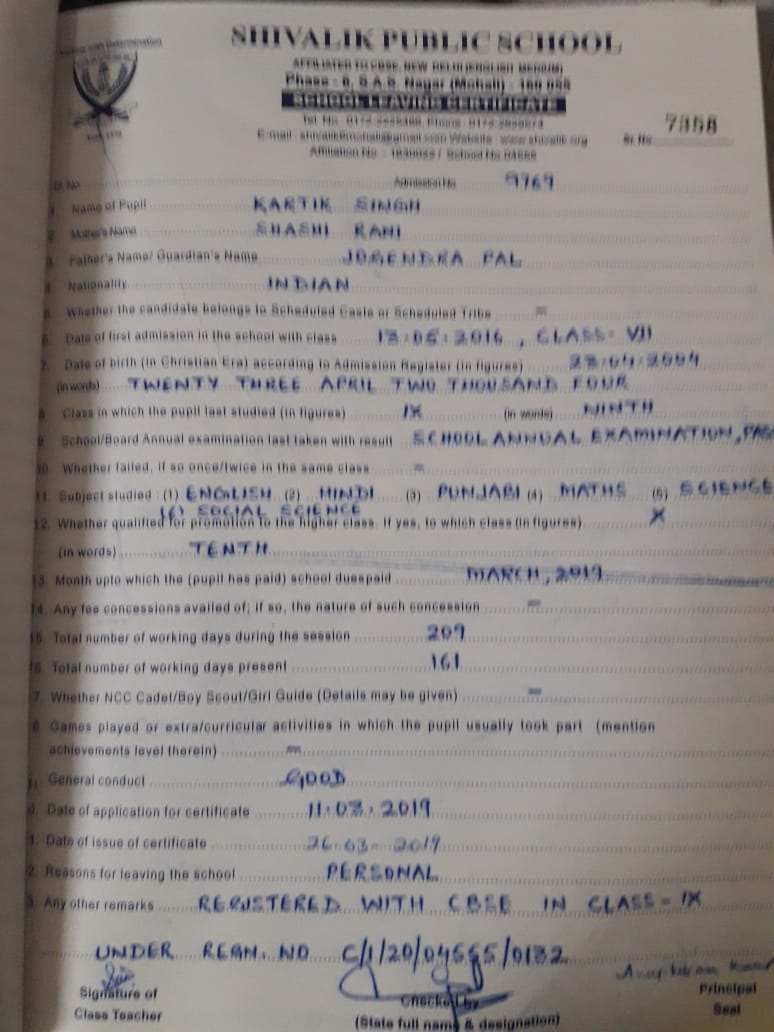 SHIVALIK PUBLIC SCHOOL
AFFILIATED TO CBSE, NEW DELHI (ENGLISH MEDIUM)
Phase - 6, S.A.S. Nagar (Mohali) - 160 055
SCHOOL LEAVING CERTIFICATE
Tel. No. Phone
E-mail : Website : www.shivalik.org
Sr. No. 7358
Affiliation No. - / School No.
Sl. No. Admission No. 9769
1. Name of Pupil KARTIK SINGH
2. Mother's Name SHASHI RANI
3. Father's Name/ Guardian's Name JOGENDRA PAL
4. Nationality INDIAN
5. Whether the candidate belongs to Scheduled Caste or Scheduled Tribe =
6. Date of first admission in the school with class .05.2016, CLASS- VII
7. Date of birth (in Christian Era) according to Admission Register (in figures) 23.04.2004
(in words) TWENTY THREE APRIL TWO THOUSAND FOUR
8. Class in which the pupil last studied (in figures) IX (in words) NINTH
9. School/Board Annual examination last taken with result SCHOOL ANNUAL EXAMINATION,
10. Whether failed, if so once/twice in the same class =
11. Subject studied : (1) ENGLISH (2) HINDI (3) PUNJABI (4) MATHS (5) SCIENCE
(6) SOCIAL SCIENCE
12. Whether qualified for promotion to the higher class. If yes, to which class (in figures) X
(in words) TENTH
13. Month upto which the (pupil has paid) school duespaid MARCH, 2019
14. Any fee concessions availed of; if so, the nature of such concession =
15. Total number of working days during the session 209
16. Total number of working days present 161
7. Whether NCC Cadet/Boy Scout/Girl Guide (Details may be given) =
8. Games played or extra/curricular activities in which the pupil usually took part (mention
achievements level therein) =
General conduct GOOD
Date of application for certificate 11.03.2019
1. Date of issue of certificate 26.03.2019
2. Reasons for leaving the school PERSONAL
3. Any other remarks REGISTERED WITH CBSE IN CLASS - IX
UNDER REGN. NO C/1/20/04555/0132
Signature of
Class Teacher
Checked by
(State full name & designation)
Principal
Seal